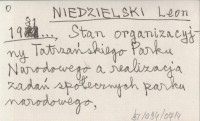 0
NIEDZIELSKI Leon
1931... Stan organizacyj-
ny Tatrzańskiego Parku
Narodowego a realizacja
zadań społecznych parku
narodowego,